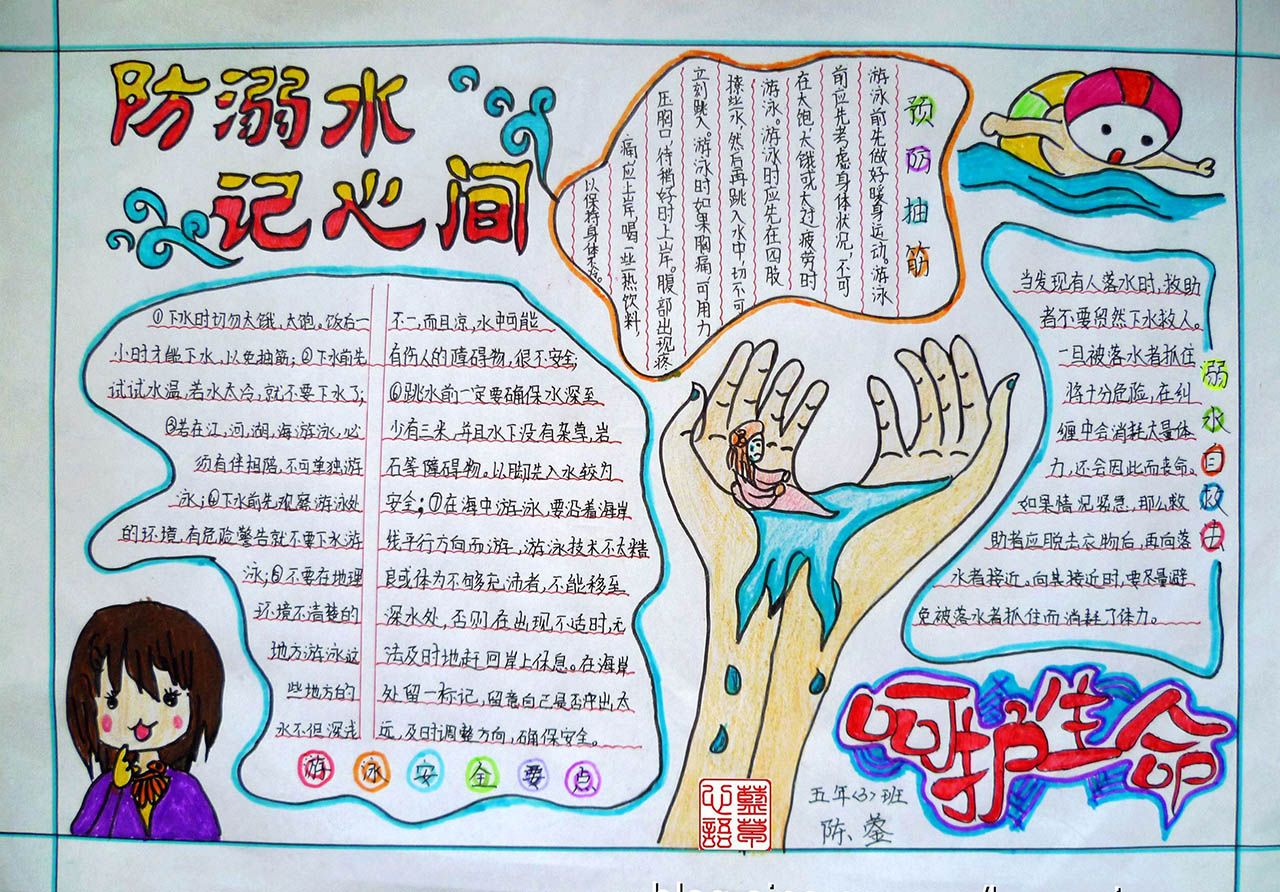 防溺水
记心间
预防抽筋
游泳前先做好暖身运动。游泳
前应先考虑身体状况,不可
在太饱、太饿或太过疲劳时
游泳。游泳时应先在四肢
撩些水,然后再跳入水中,切不可
立刻跳入。游泳时如果胸痛,可用力
压胸口,待稍好时上岸。腹部出现疼
痛应上岸,喝一些热饮料,
以保持身体
①下水时切勿太饿,太饱。饭后一
小时才能下水,以免抽筋;②下水前先
试试水温,若水太冷,就不要下水了;
③若在江,河,湖,海游泳,必
须有伴相陪,不可单独游
泳;④下水前先观察游泳处
的环境,有危险警告就不要下水游
泳;⑤不要在地理
环境不清楚的
地方游泳这
些地方的
水不但深浅
不一,而且凉,水中可能
有伤人的障碍物,很不安全;
⑥跳水前一定要确保水深至
少有三米,并且水下没有杂草,岩
石等障碍物。以脚先入水较为
安全;⑦在海中游泳,要沿着海岸
线平行方向而游,游泳技术不太精
良或体力不够充沛者,不能移至
深水处,否则在出现不适时,无
法及时地赶回岸上休息。在海岸
处留一标记,留意自己是否冲出太
远,及时调整方向,确保安全。
游泳安全要点
溺水自救法
当发现有人落水时,救助
者不要贸然下水救人。
一旦被落水者抓住
将十分危险,在纠
缠中会消耗大量体
力,还会因此而丧命。
如果情况紧急,那么救
助者应脱去衣物后,再向落
水者接近。向其接近时,要尽量避
免被落水者抓住而消耗了体力。
呵护生命
五年(3)班
陈蓥
蓝草
心语